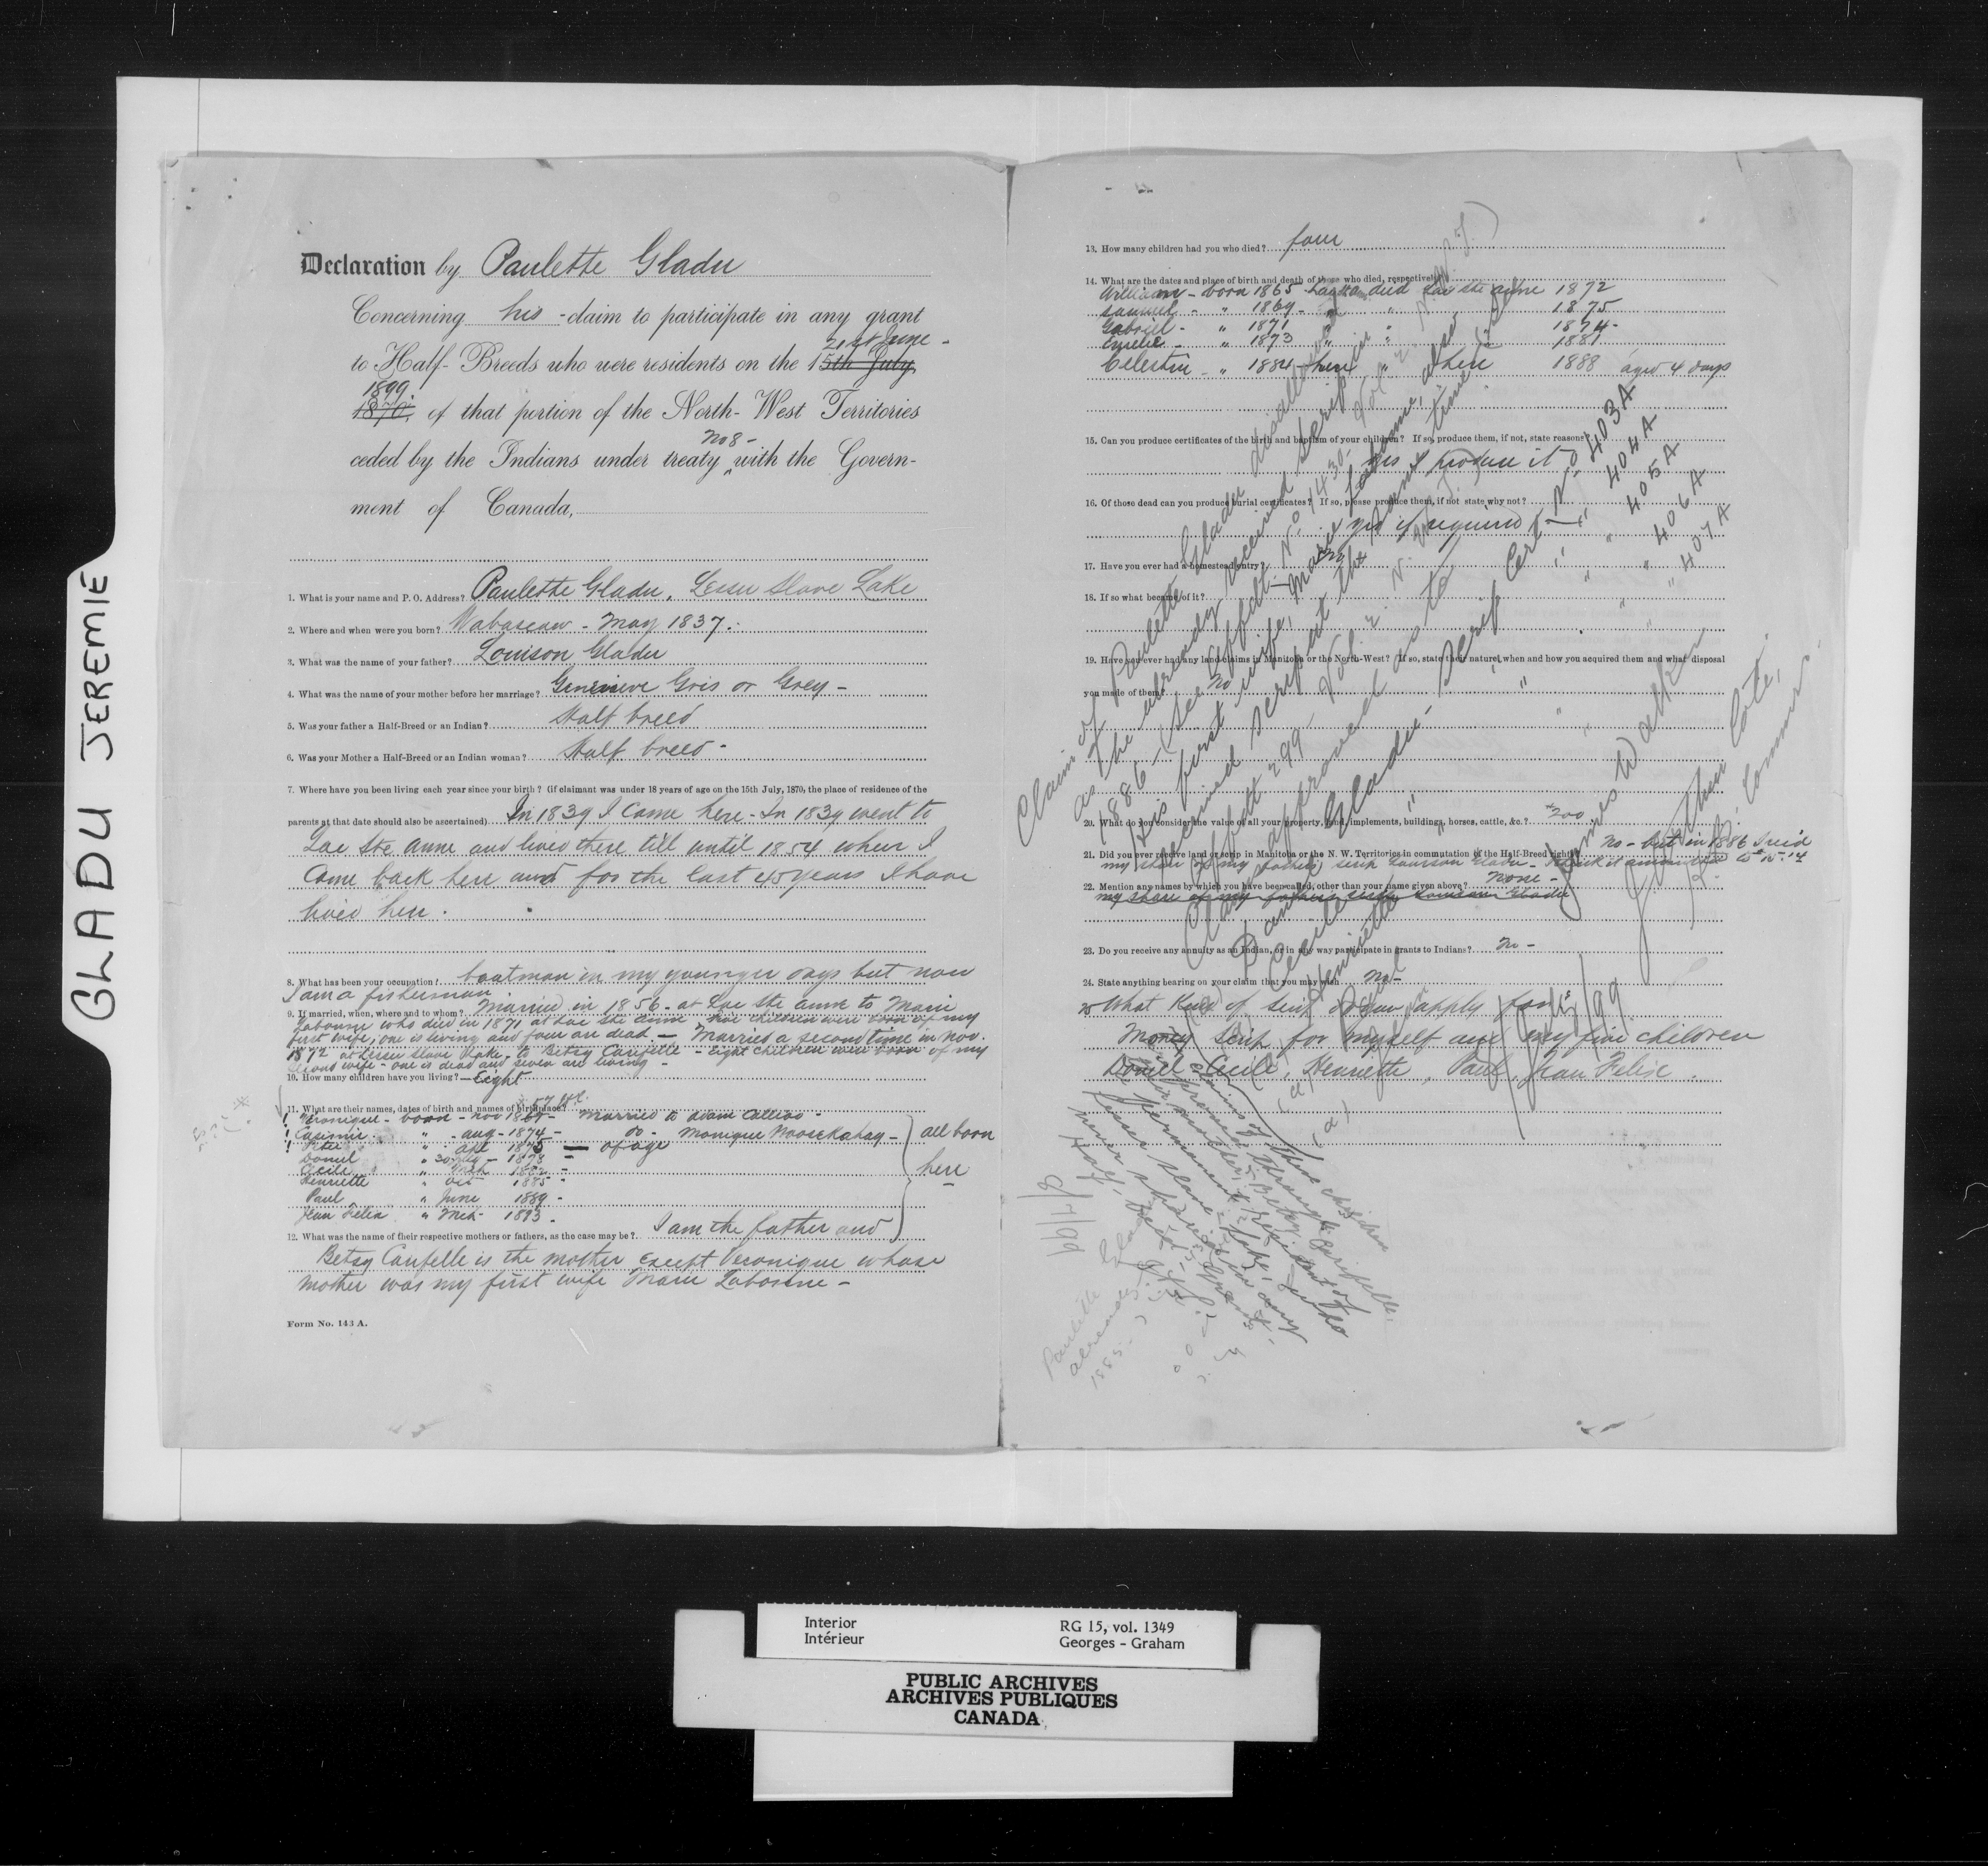 GLADU JEREMIE
Declaration by Paulette Gladu
Concerning his claim to participate in any grant
21st June -
to Half-Breeds who were residents on the 15th July,
1899.
1870, of that portion of the North-West Territories
No 8 -
ceded by the Indians under treaty with the Govern-
ment of Canada,
1. What is your name and P. O. Address? Paulette Gladu, Lesser Slave Lake
2. Where and when were you born? Wabascaw - May 1837.
3. What was the name of your father? Louison Gladu
4. What was the name of your mother before her marriage? Genevieve Gris or Grey -
5. Was your father a Half-Breed or an Indian? Half breed
6. Was your Mother a Half-Breed or an Indian woman? Half breed -
7. Where have you been living each year since your birth? (if claimant was under 18 years of age on the 15th July, 1870, the place of residence of the
parents at that date should also be ascertained) In 1839 I came here - In 1839 went to
Lac Ste Anne and lived there till until 1854 when I
came back here and for the last 45 years I have
lived here.
8. What has been your occupation? boatman in my younger days but now
I am a fisherman
9. If married, when, where and to whom? Married in 1856 - at Lac Ste Anne to Marie
who died in 1871 at Lac Ste Anne - five children were born of my
first wife, one is living and four are dead - Married a second time in Nov.
1872 at Lesser Slave Lake, to Betsy - eight children were born of my
second wife - one is dead and seven are living -
10. How many children have you living? - Eight
11. What are their names, dates of birth and names of birthplace?
Veronique - born - Nov - Married to Adam Callioo -
Casimir " - Aug - 1874 - do - Monique - all born
Peter " Apl 1875 - of age
Daniel " 30 - 1878 -
Cecile " 1882 - here
Henriette " Oct 1885 -
Paul " June 1889 -
Jean Felix " Mch - 1893 -
12. What was the name of their respective mothers or fathers, as the case may be? I am the father and
Betsy is the mother except Veronique whose
mother was my first wife Marie -
Form No. 143 A.
13. How many children had you who died? four
14. What are the dates and place of birth and death of those who died, respectively?
William - born 1865 died Lac Ste Anne 1872
Samuel - " 1869 - " " 1875
Gabriel - " 1871 " " 1874 -
Emelie - " 1873 " 1881
Celestin - " 1884 - here " here 1888 aged 4 days
15. Can you produce certificates of the birth and baptism of your children? If so, produce them, if not, state reasons.
yes I produce it
16. Of those dead can you produce burial certificates? If so, please produce them, if not state why not?
yes if required
17. Have you ever had a homestead entry? no
18. If so what became of it?
19. Have you ever had any land claims in Manitoba or the North-West? If so, state their nature, when and how you acquired them and what disposal
you made of them? No
20. What do you consider the value of all your property, land, implements, buildings, horses, cattle, &c.? $200
21. Did you ever receive land or scrip in Manitoba or the N. W. Territories in commutation of the Half-Breed rights? No - but in 1886 I rec'd
my share of my father's scrip
22. Mention any names by which you have been called, other than your name given above? None -
my share of my father's scrip Louison Gladu
23. Do you receive any annuity as an Indian, or in any way participate in grants to Indians? No -
24. State anything bearing on your claim that you may wish. No -
25 What Kind of Scrip do you apply for?
Money Scrip for myself and my five children
Daniel, Cecile, Henriette, Paul, Jean Felix.
Claim of Paulette Gladu disallowed
as he already received Scrip in
1886 - (See No 1430 - Vol 2.
His first wife, Marie also
received Scrip at the same time
299 - Vol 2. N. W. T.)
Claim approved as to
Daniel Gladu - Scrip Cert No 403A
Cecile " " " 404A
Henriette " " " 405A
Paul " " " 406A
" " " 407A
James Walker
J. A. Coté,
Comrs.
The claims of these children
approved through
their mother, Betsy
permanent resident of
Lesser Slave Lake,
never shared in any
8/7/99
Paulette Gladu
already
1885
Interior
Intérieur
RG 15, vol. 1349
Georges - Graham
PUBLIC ARCHIVES
ARCHIVES PUBLIQUES
CANADA